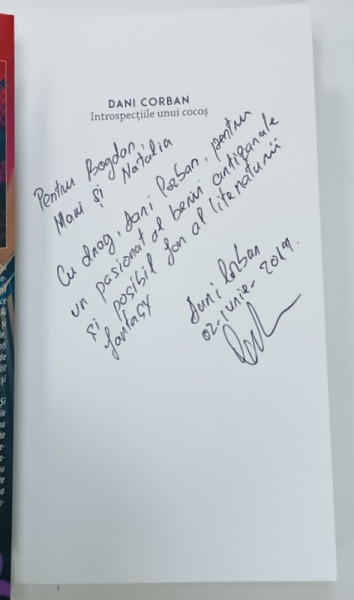 DANI CORBAN
Introspecțiile unui cocoș
Pentru Bogdan,
Mani și Natalia
Cu drag, Dani Corban, pentru
un pasionat al berii artizanale
și posibil fan al literaturii
fantasy
Dani Corban
02-iunie-2019.